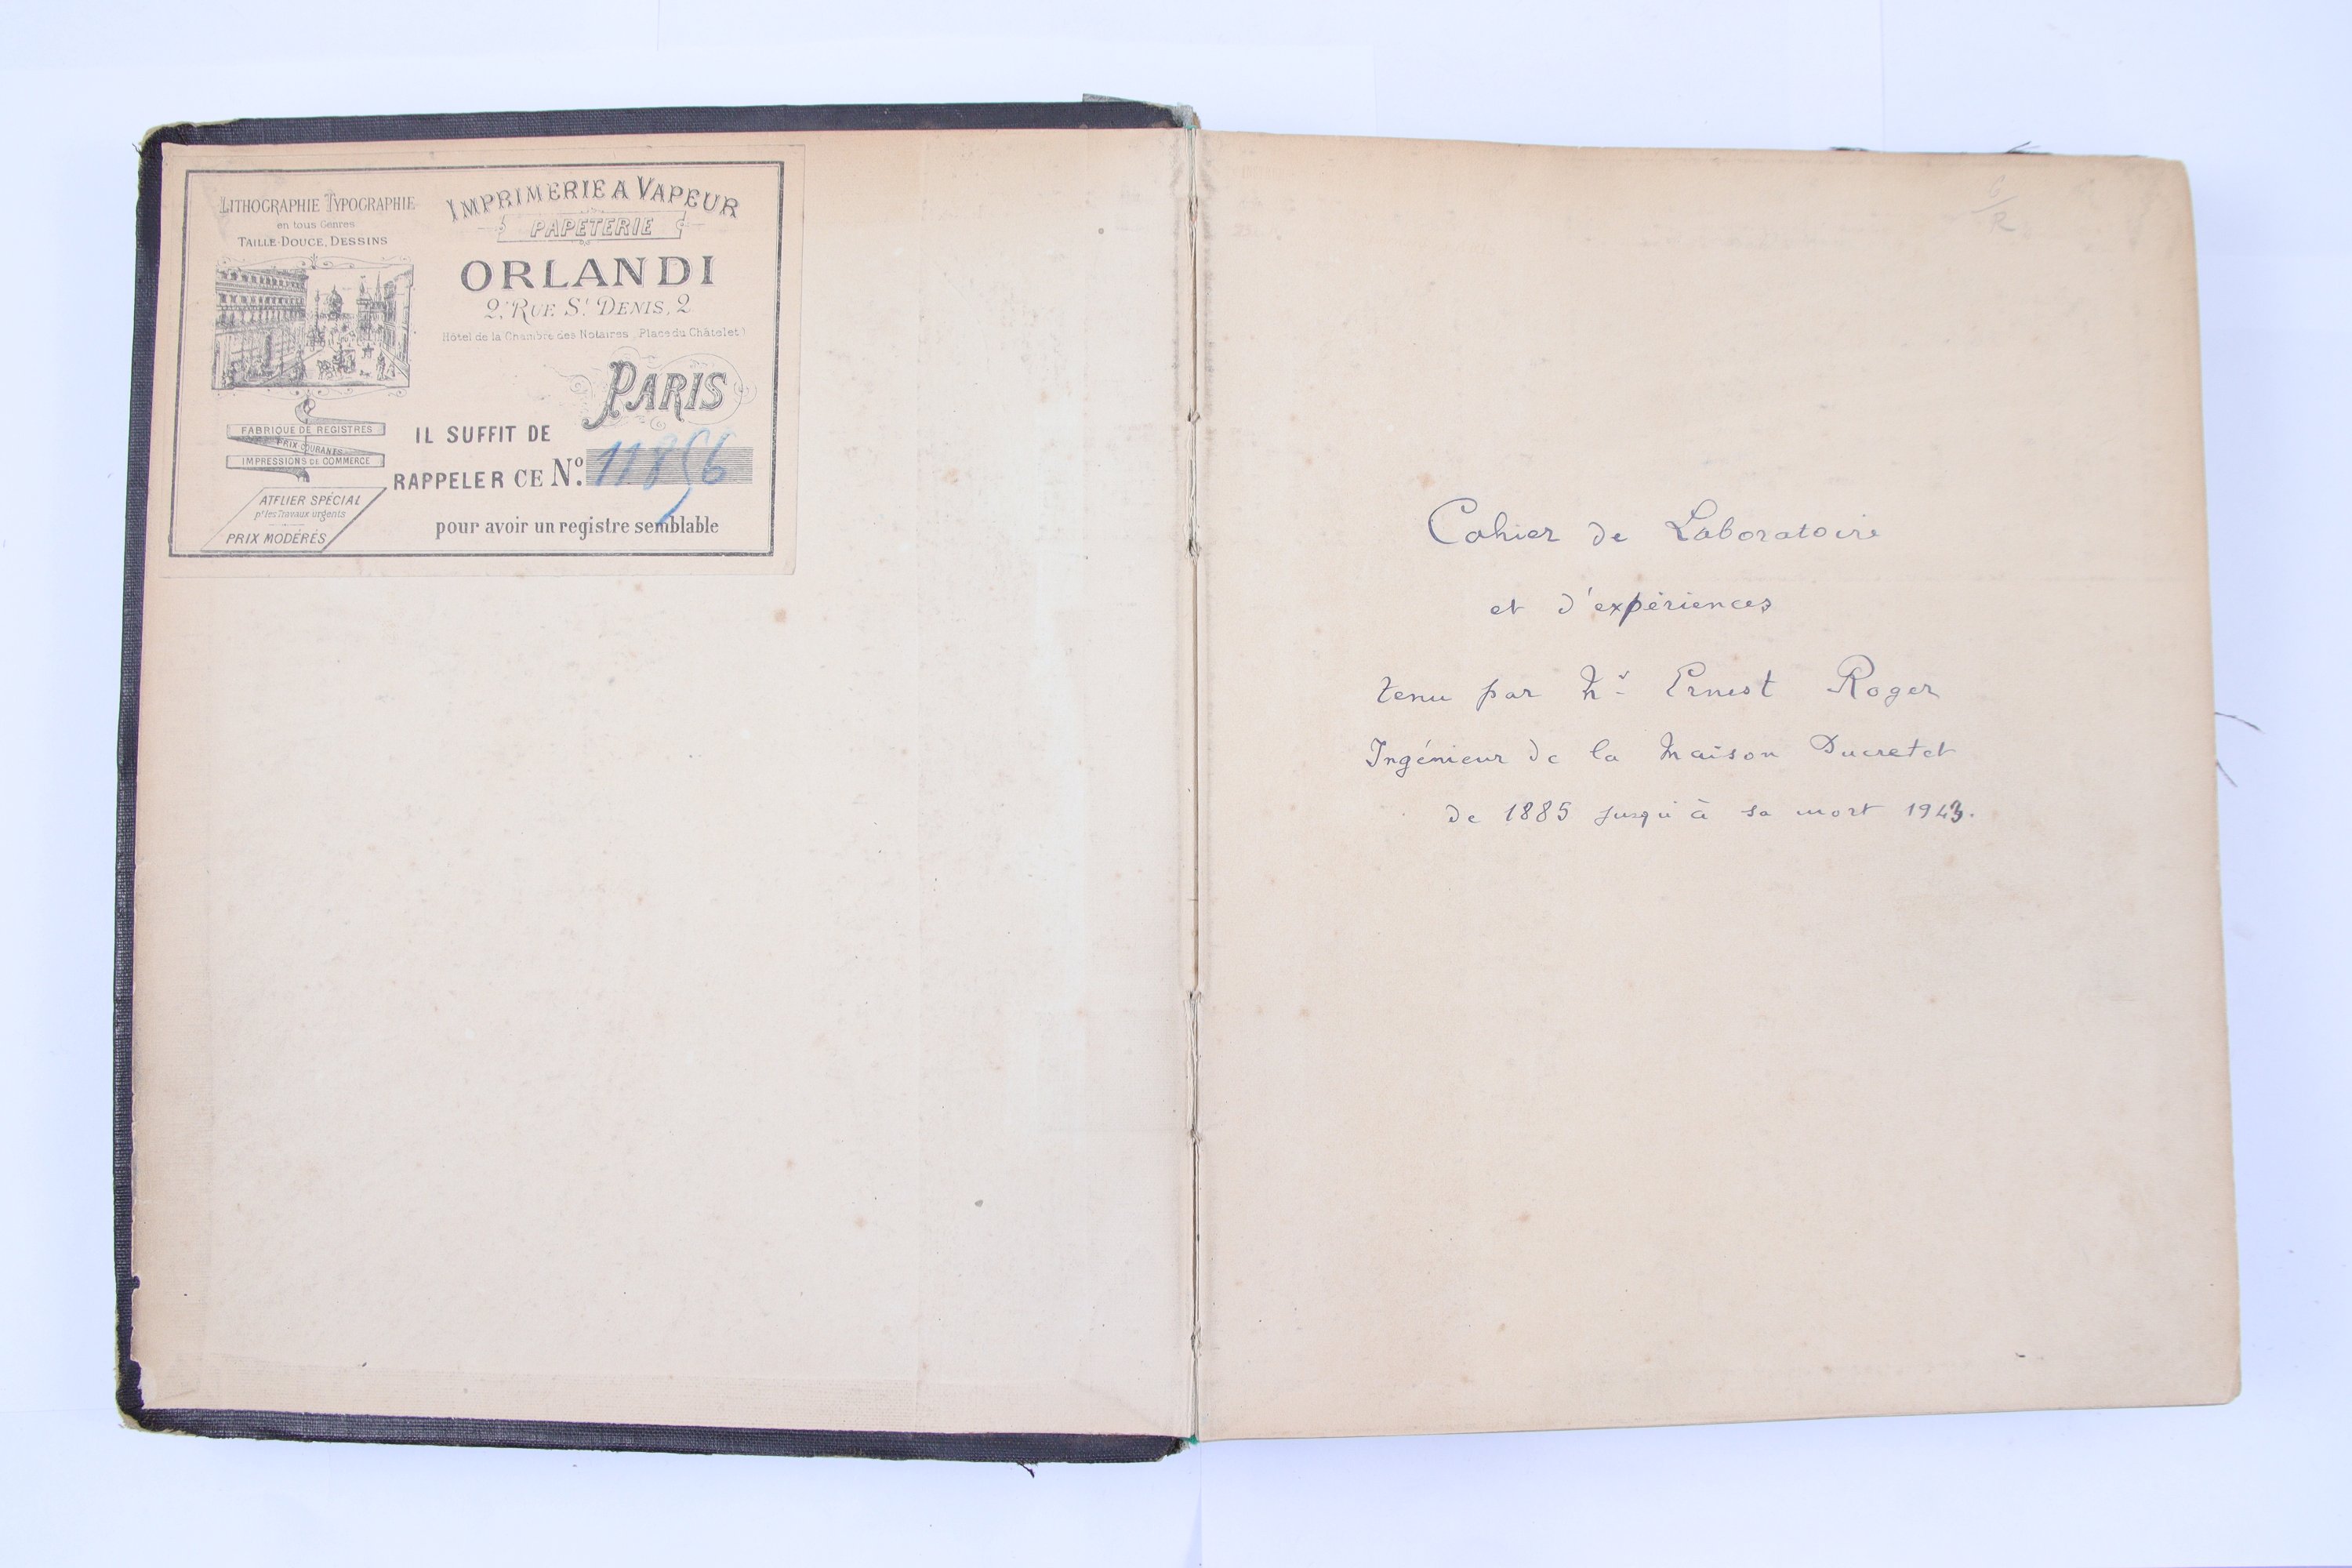 LITHOGRAPHIE TYPOGRAPHIE
en tous Genres
TAILLE-DOUCE, DESSINS
IMPRIMERIE A VAPEUR
PAPETERIE
ORLANDI
2, RUE St DENIS, 2
Hôtel de la Chambre des Notaires (Place du Châtelet)
PARIS
FABRIQUE DE REGISTRES
PRIX COURANTS
IMPRESSIONS DE COMMERCE
ATELIER SPÉCIAL
pr les Travaux urgents
PRIX MODÉRÉS
IL SUFFIT DE
RAPPELER CE No. 11856
pour avoir un registre semblable
Cahier de Laboratoire
et d'expériences
tenu par Mr Ernest Roger
Ingénieur de la Maison Ducretet
de 1885 jusqu'à sa mort 1943.